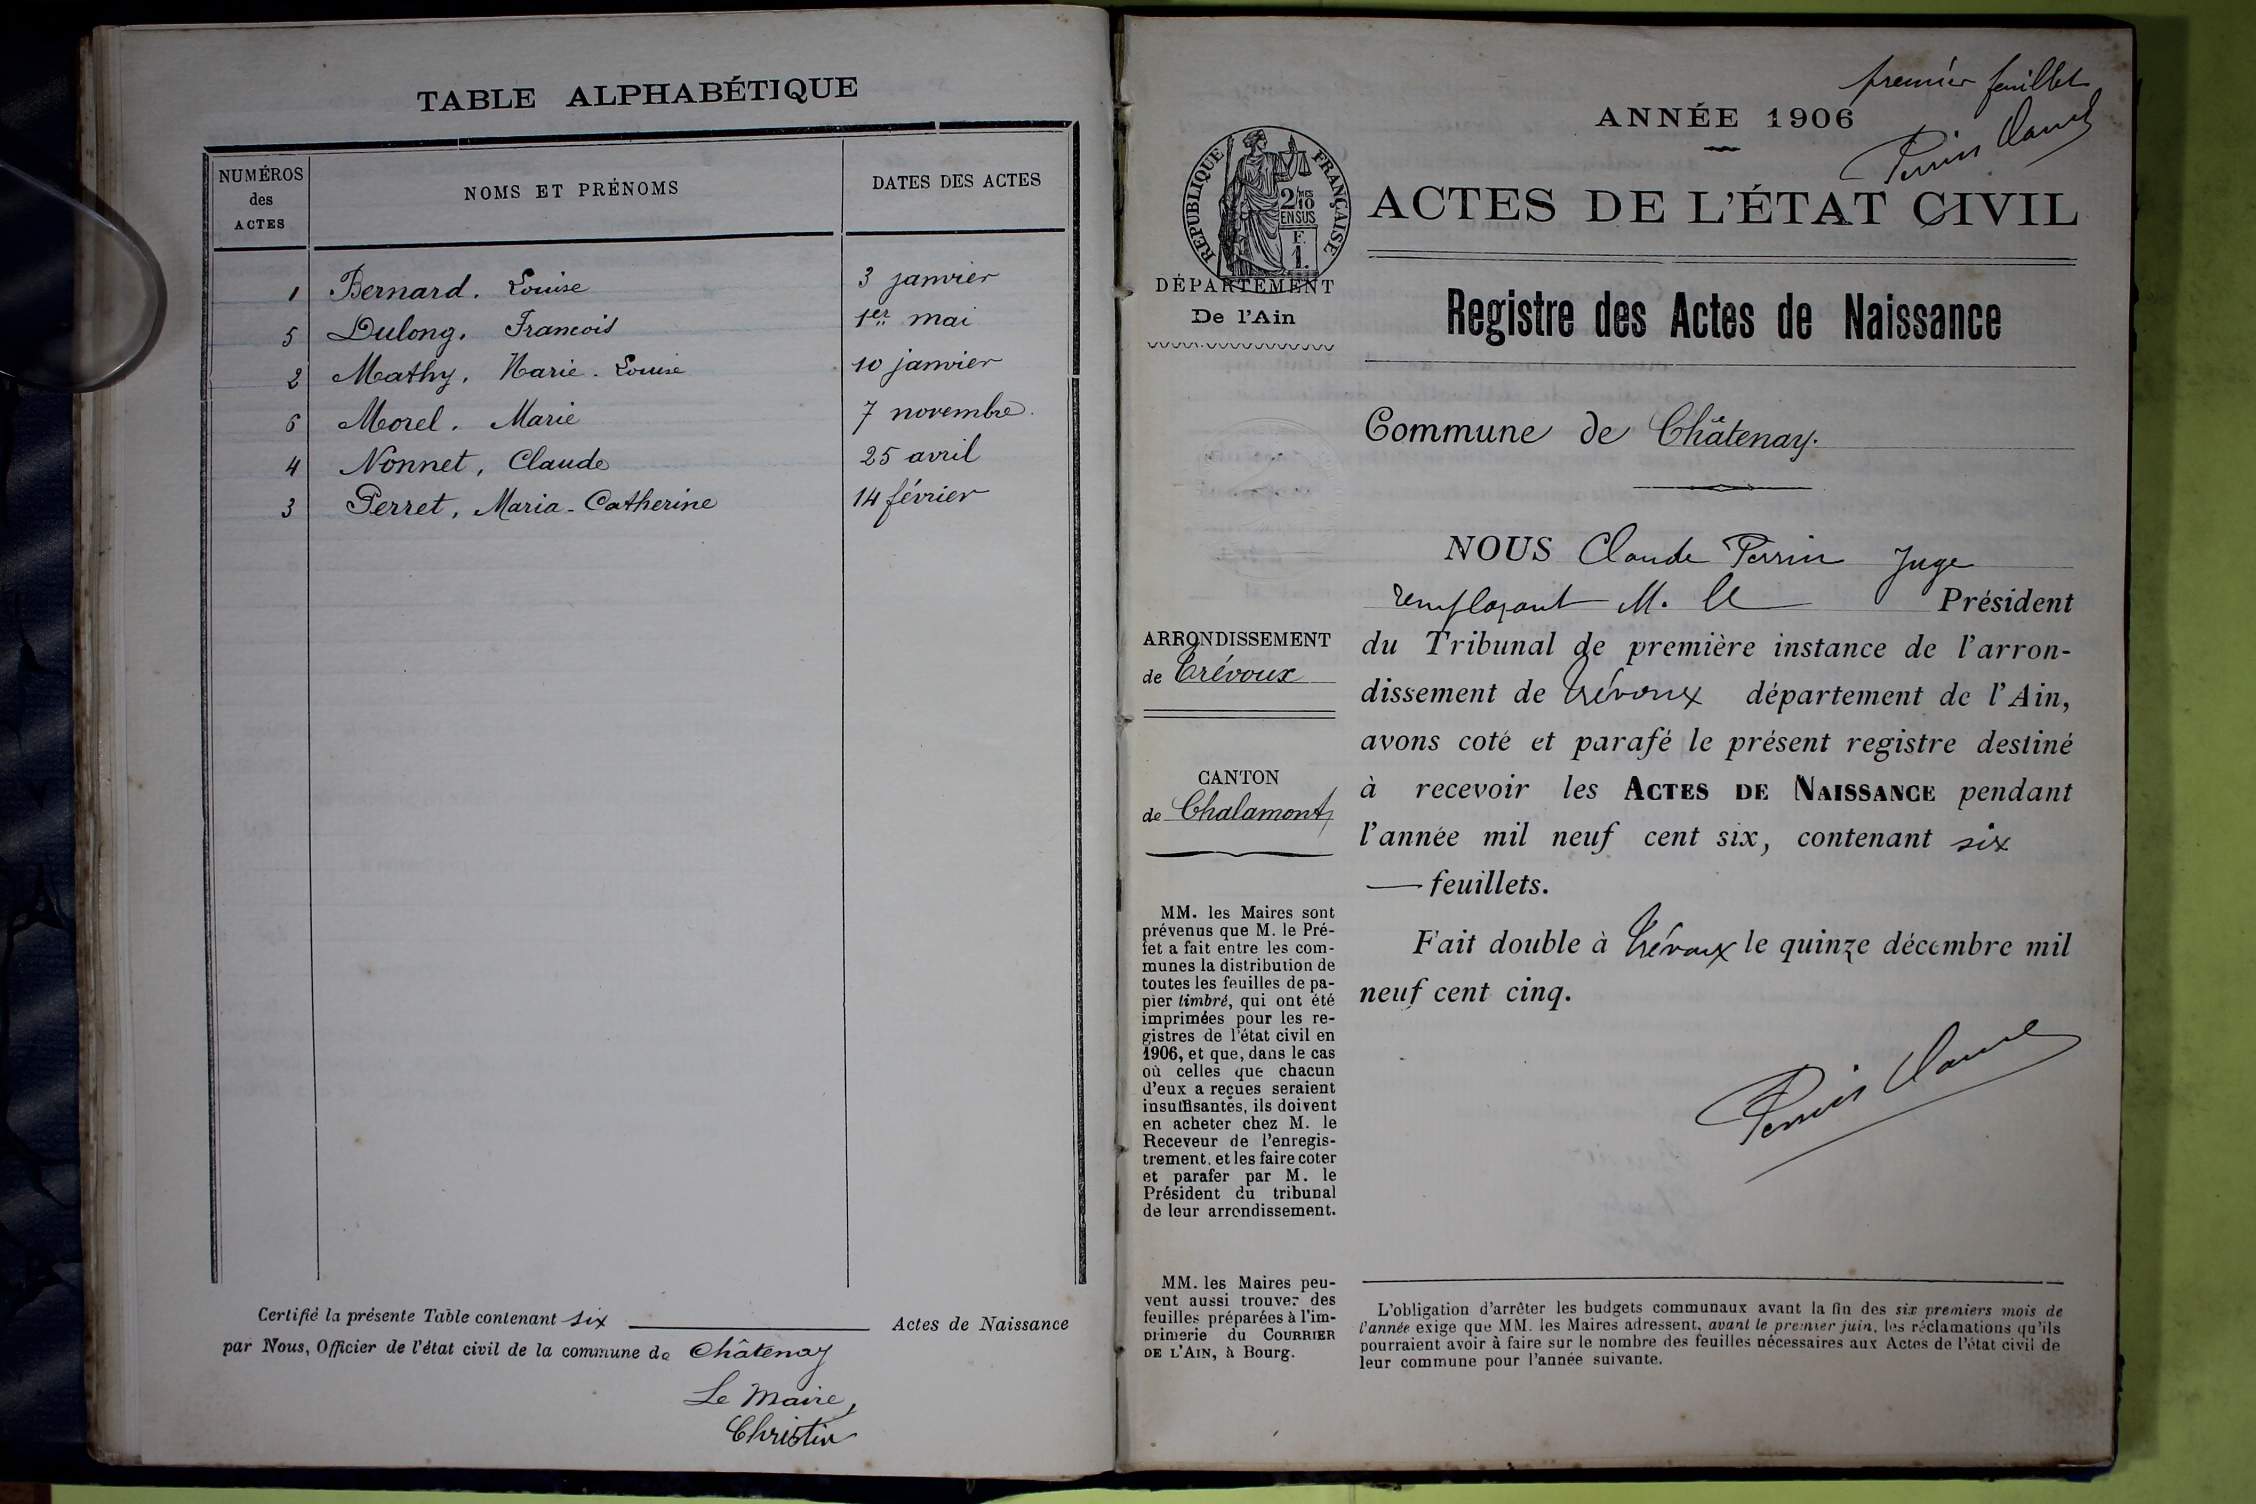 TABLE ALPHABÉTIQUE
NUMÉROS des ACTES
NOMS ET PRÉNOMS
DATES DES ACTES
1 Bernard. Louise 3 janvier
5 Dulong. Francois 1er mai
2 Mathy. Marie-Louise 10 janvier
6 Morel. Marie 7 novembre.
4 Nonnet, Claude 25 avril
3 Perret, Maria-Catherine 14 février
Certifié la présente Table contenant six Actes de Naissance
par Nous, Officier de l'état civil de la commune de Châtenay
Le Maire,
Christin
premier feuillet
Perrin Claude
ANNÉE 1906
RÉPUBLIQUE FRANÇAISE
2/10MES
EN SUS
F.
1.
ACTES DE L'ÉTAT CIVIL
DÉPARTEMENT
De l'Ain
Registre des Actes de Naissance
Commune de Châtenay.
NOUS Claude Perrin Juge
remplaçant M. le Président
ARRONDISSEMENT
de Trévoux
du Tribunal de première instance de l'arron-
dissement de Trévoux département de l'Ain,
avons coté et parafé le présent registre destiné
à recevoir les ACTES DE NAISSANCE pendant
l'année mil neuf cent six, contenant six
— feuillets.
Fait double à Trévoux le quinze décembre mil
neuf cent cinq.
Perrin Claude
CANTON
de Chalamont
MM. les Maires sont
prévenus que M. le Pré-
fet a fait entre les com-
munes la distribution de
toutes les feuilles de pa-
pier timbré, qui ont été
imprimées pour les re-
gistres de l'état civil en
1906, et que, dans le cas
où celles que chacun
d'eux a reçues seraient
insuffisantes, ils doivent
en acheter chez M. le
Receveur de l'enregis-
trement, et les faire coter
et parafer par M. le
Président du tribunal
de leur arrondissement.
MM. les Maires peu-
vent aussi trouver des
feuilles préparées à l'im-
primerie du COURRIER
DE L'AIN, à Bourg.
L'obligation d'arrêter les budgets communaux avant la fin des six premiers mois de
l'année exige que MM. les Maires adressent, avant le premier juin, les réclamations qu'ils
pourraient avoir à faire sur le nombre des feuilles nécessaires aux Actes de l'état civil de
leur commune pour l'année suivante.